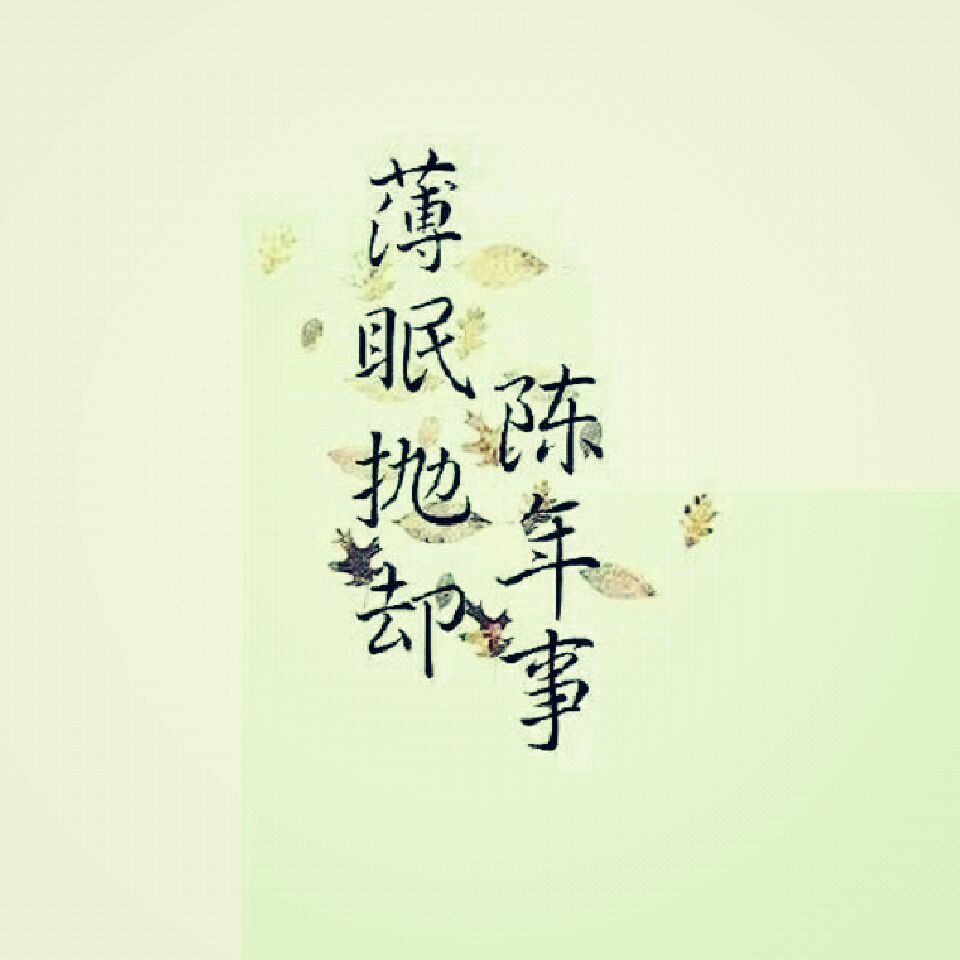 薄眠抛却
陈年事